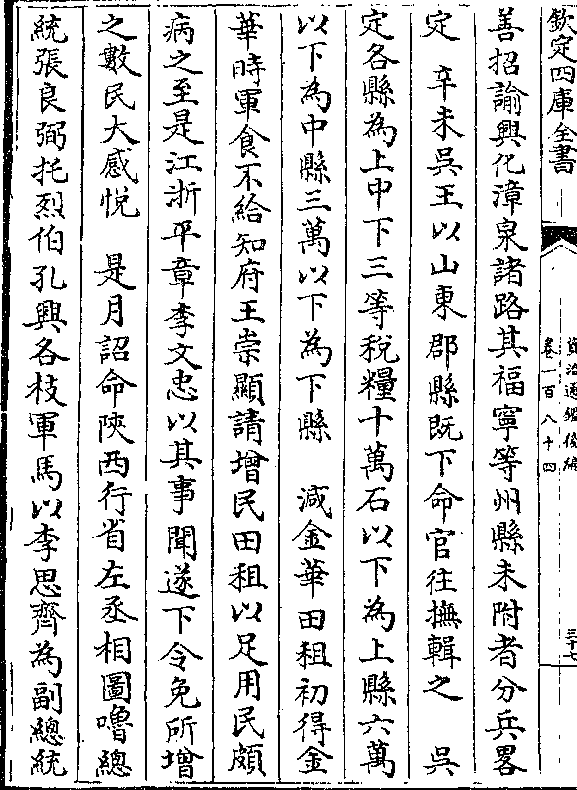 欽定四庫全書
資治通鑑後編
卷一百八十四
三十七
善招諭興化漳泉諸路其福寧等州縣未附者分兵畧
定　辛未吳王以山東郡縣既下命官往撫輯之　吳
定各縣為上中下三等稅糧十萬石以下為上縣六萬
以下為中縣三萬以下為下縣　減金華田租初得金
華時軍食不給知府王崇顯請增民田租以足用民頗
病之至是江浙平章李文忠以其事聞遂下令免所增
之數民大感悦　是月詔命陝西行省左丞相圖嚕總
統張良弼托烈伯孔興各枝軍馬以李思齊為副總統